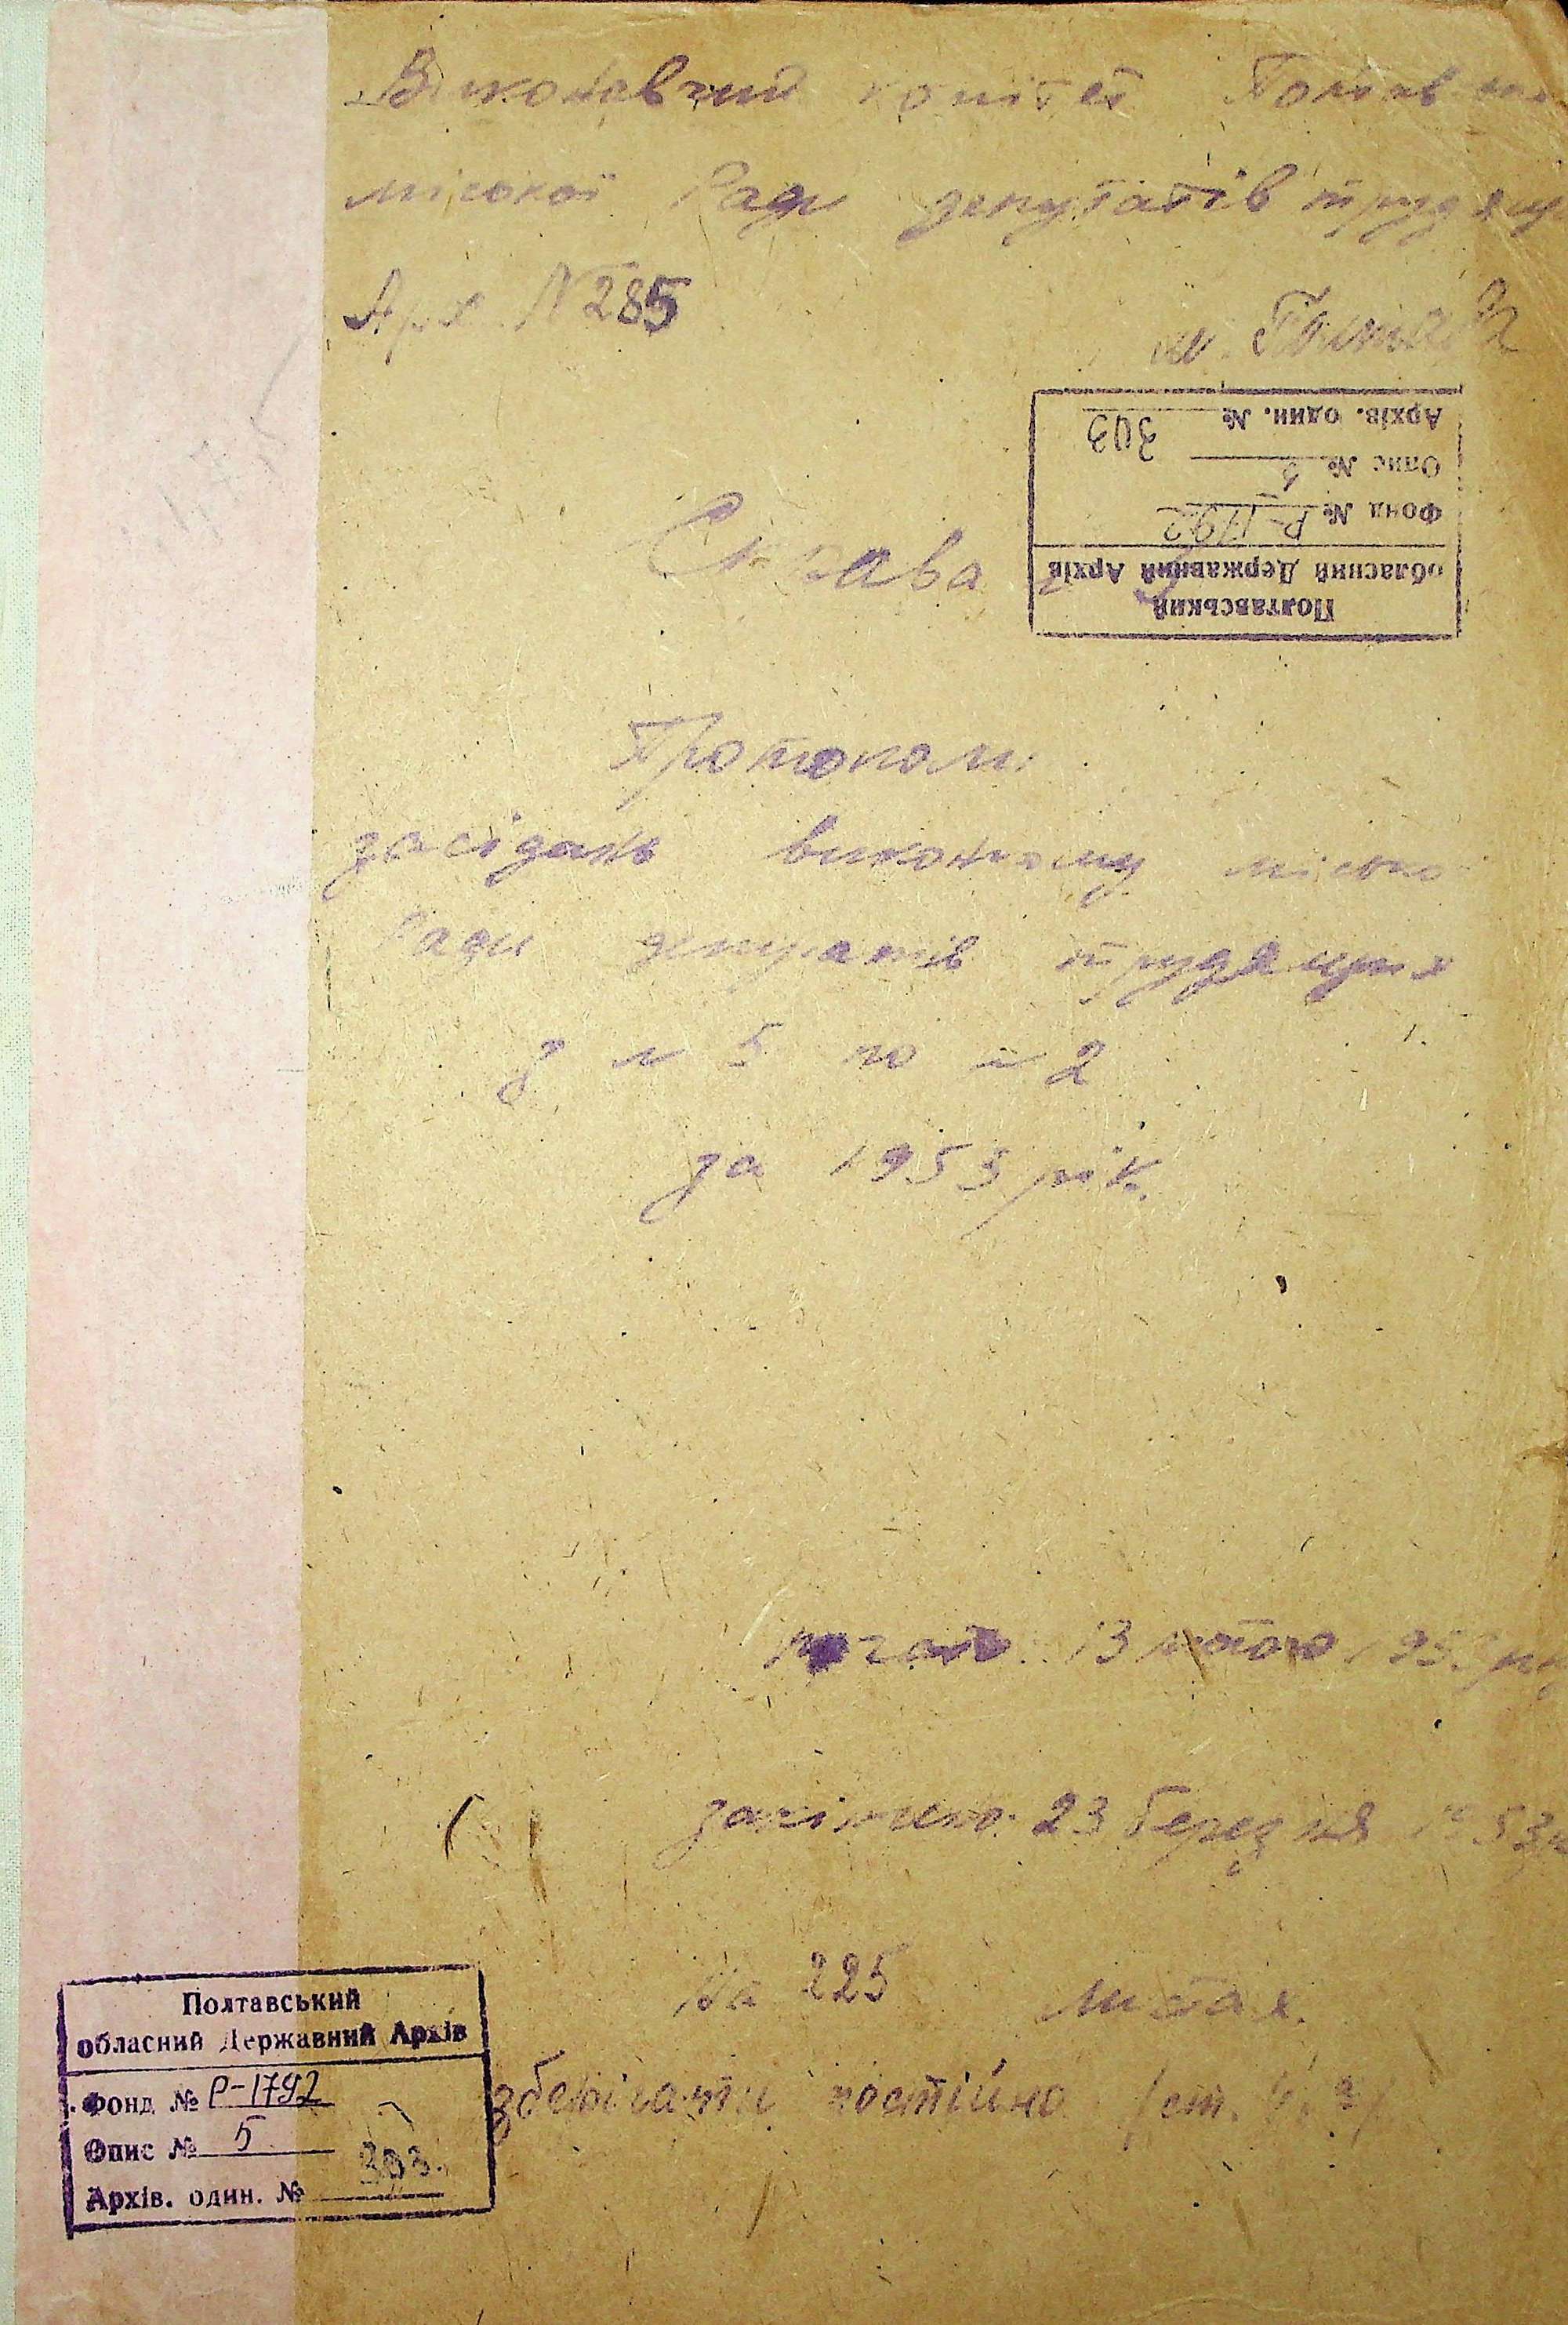 Виконавчий комітет Полтавсь
міської Ради депутатів трудящ
Арх. N 285
м. Полтава
Полтавський
обласний Державний Архів
Фонд № Р-1792
Опис № 5
Архів. один. № 303
Справа
Протоколи
засідань виконкому місько
Ради депутатів трудящих
з № 5 по № 2
за 1953 рік.
почато: 13 лютого 1953 р
закінчено: 23 березня 1953
На 225 листах.
зберігати постійно
Полтавський
обласний Державний Архів
Фонд № Р-1792
Опис № 5
Архів. один. № 303.